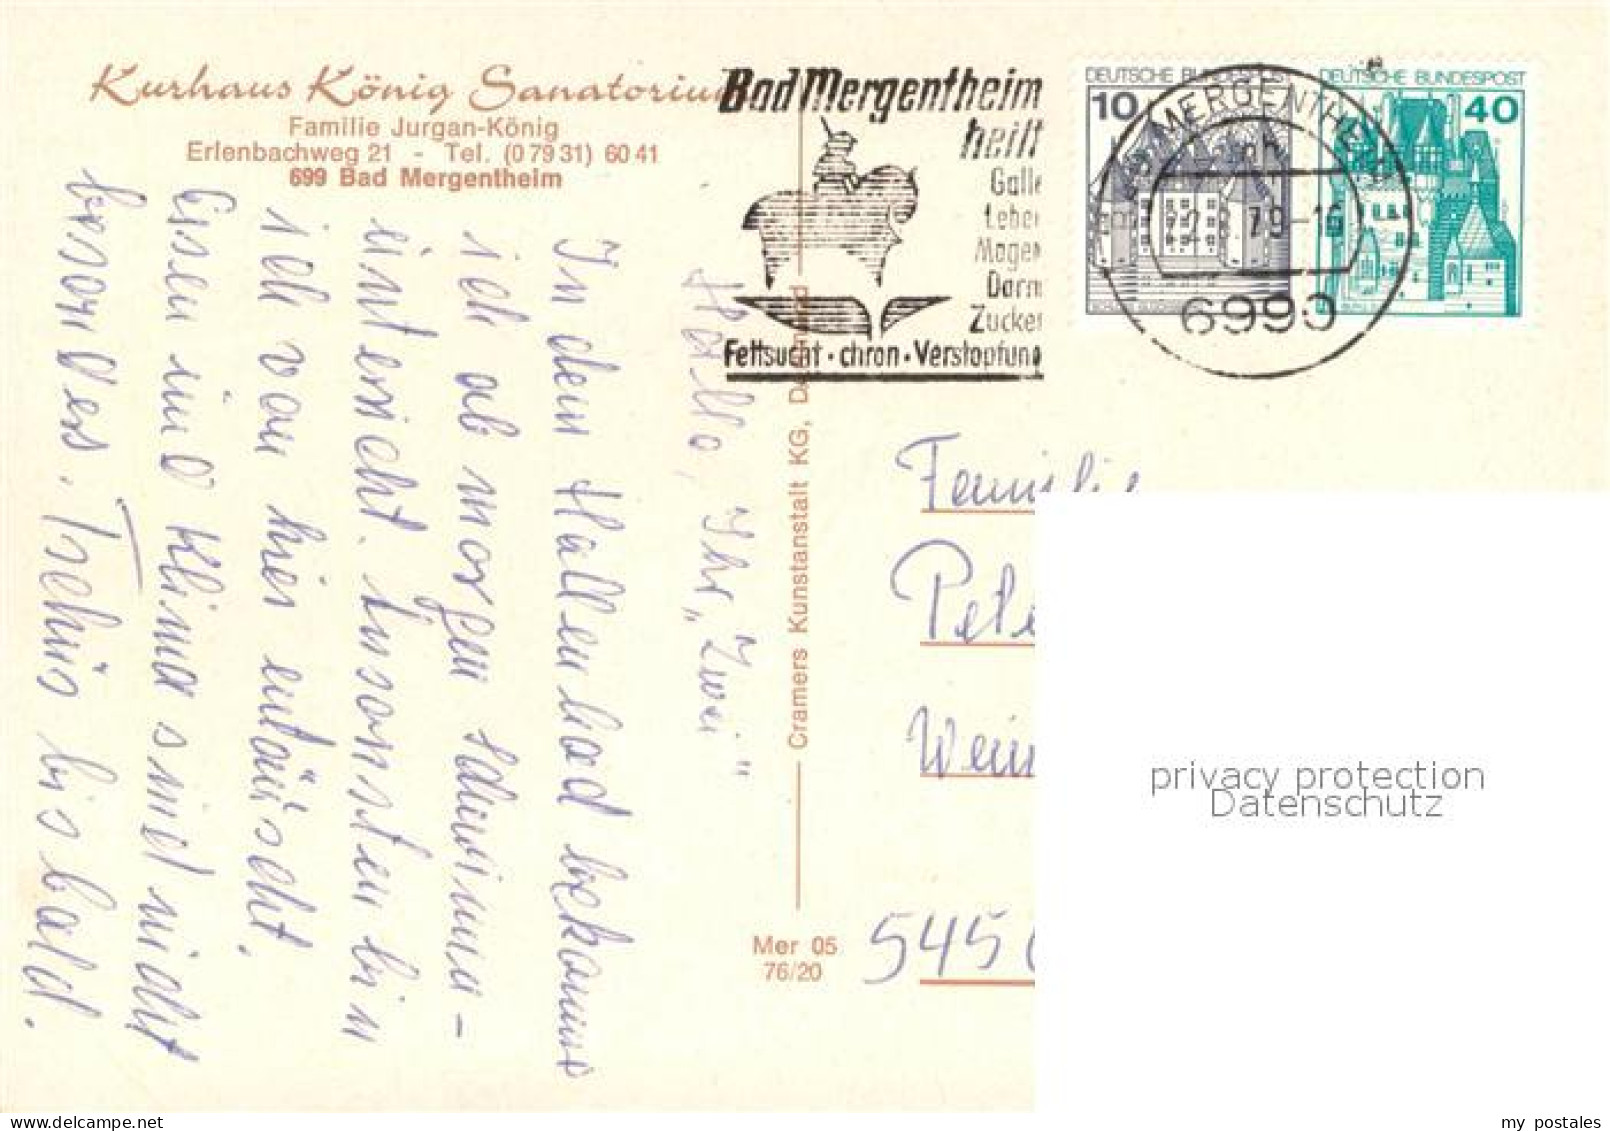 Kurhaus König Sanatorium
Familie Jurgan-König
Erlenbachweg 21 - Tel. (0 79 31) 60 41
699 Bad Mergentheim
Bad Mergentheim
heilt
Galle
Leber
Magen
Darm
Zucker
Fettsucht · chron · Verstopfung
DEUTSCHE BUNDESPOST
10
DEUTSCHE BUNDESPOST
40
MERGENTHEIM
79-16
6990
Hallo, Ihr „Zwei"
In dem Hallenbad bekomme
ich ab morgen Schwimm-
unterricht. Ansonsten bin
ich von hier entäuscht.
Essen und Klima sind nicht
besonders. Tschüs bis bald.
Cramers Kunstanstalt KG, Dortmund
Mer 05
76/20
Familie
Pete
Wein
545
privacy protection
Datenschutz
my postales